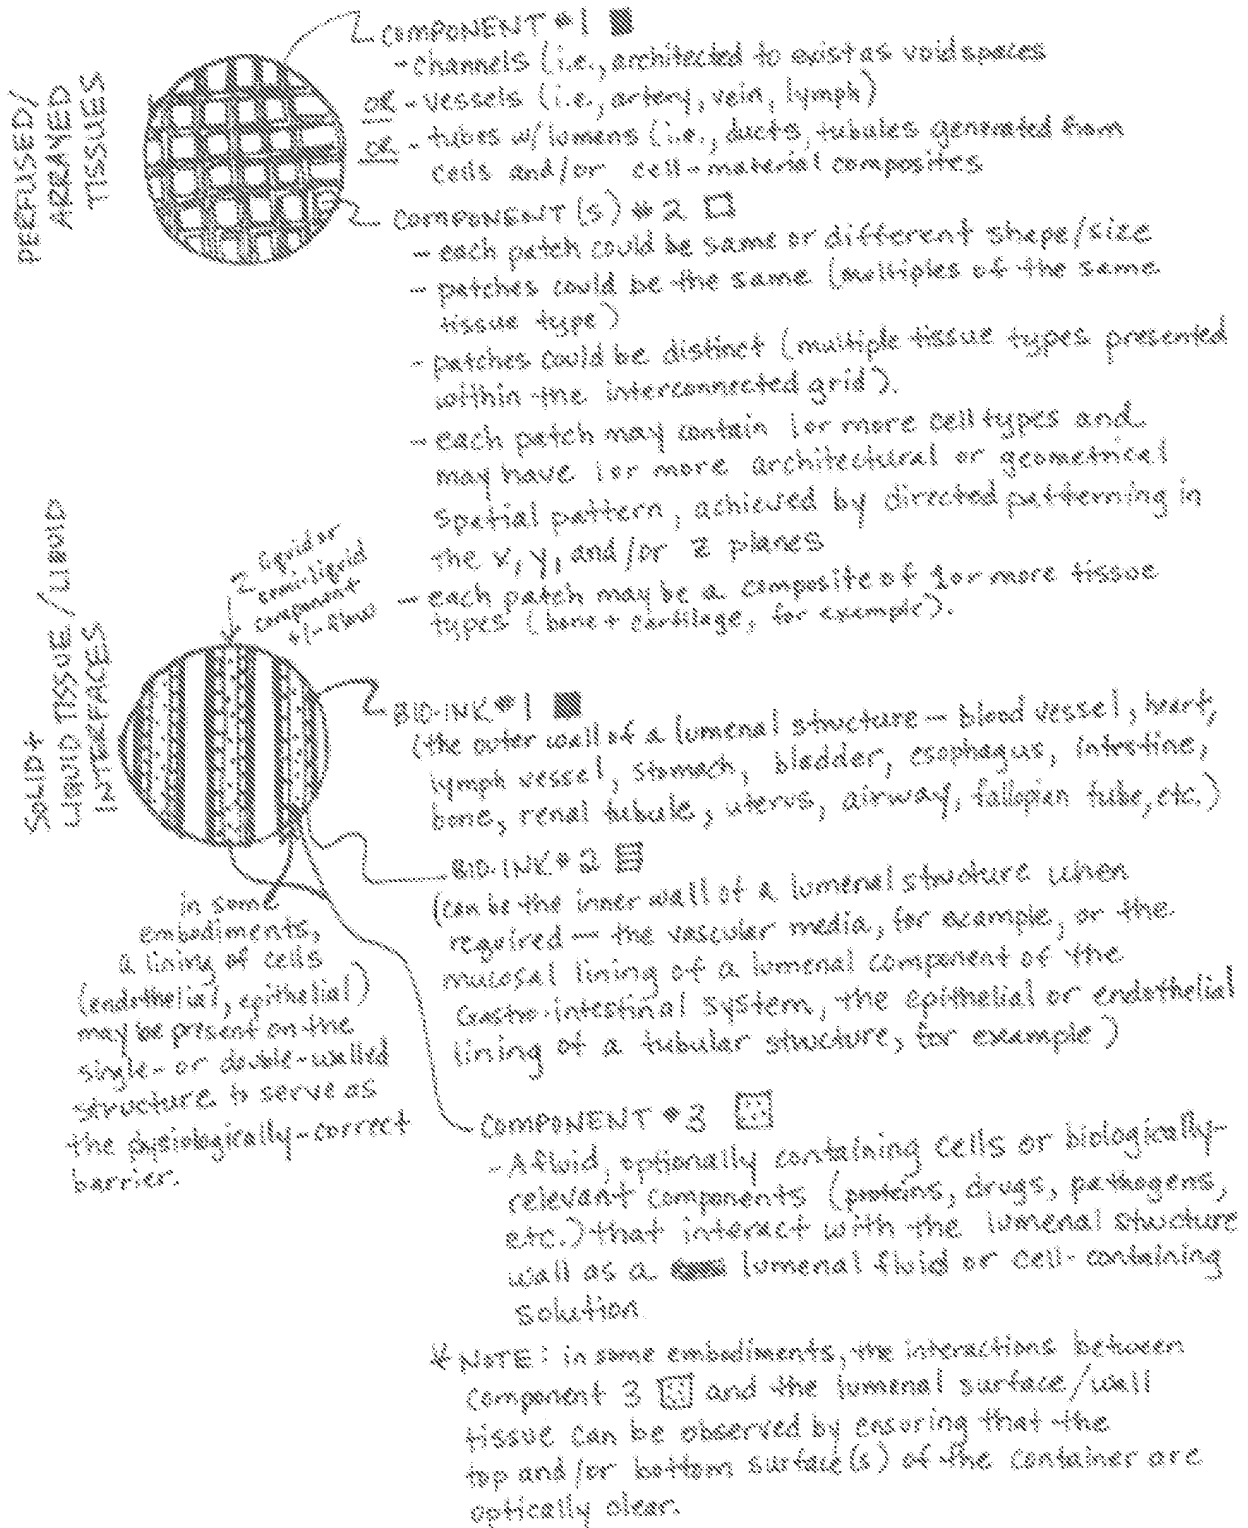 PERFUSED/
ARRAYED
TISSUES
COMPONENT #1
- channels (i.e., architected to exist as void spaces
OR - vessels (i.e., artery, vein, lymph)
OR - tubes w/lumens (i.e., ducts, tubules generated from
cells and/or cell-material composites
COMPONENT(S) #2
- each patch could be same or different shape/size
- patches could be the same (multiples of the same
tissue type)
- patches could be distinct (multiple tissue types presented
within the interconnected grid).
- each patch may contain 1 or more cell types and
may have 1 or more architectural or geometrical
spatial pattern, achieved by directed patterning in
the x, y, and/or z planes
- each patch may be a composite of 1 or more tissue
types (bone + cartilage, for example).
SOLID +
LIQUID TISSUE/LIQUID
INTERFACES
2 liquid or
semi-liquid
component
+/- flow
BIO-INK #1
(the outer wall of a lumenal structure — blood vessel, heart,
lymph vessel, stomach, bladder, esophagus, intestine,
bone, renal tubule, uterus, airway, fallopian tube, etc.)
BIO-INK #2
(can be the inner wall of a lumenal structure when
required — the vascular media, for example, or the
mucosal lining of a lumenal component of the
Gastro-intestinal system, the epithelial or endothelial
lining of a tubular structure, for example)
in some
embodiments,
a lining of cells
(endothelial, epithelial)
may be present on the
single- or double-walled
structure to serve as
the physiologically-correct
barrier.
COMPONENT #3
- A fluid, optionally containing cells or biologically-
relevant components (proteins, drugs, pathogens,
etc.) that interact with the lumenal structure
wall as a lumenal fluid or cell-containing
solution
* NOTE: in some embodiments, the interactions between
Component 3 and the lumenal surface/wall
tissue can be observed by ensuring that the
top and/or bottom surface(s) of the container are
optically clear.